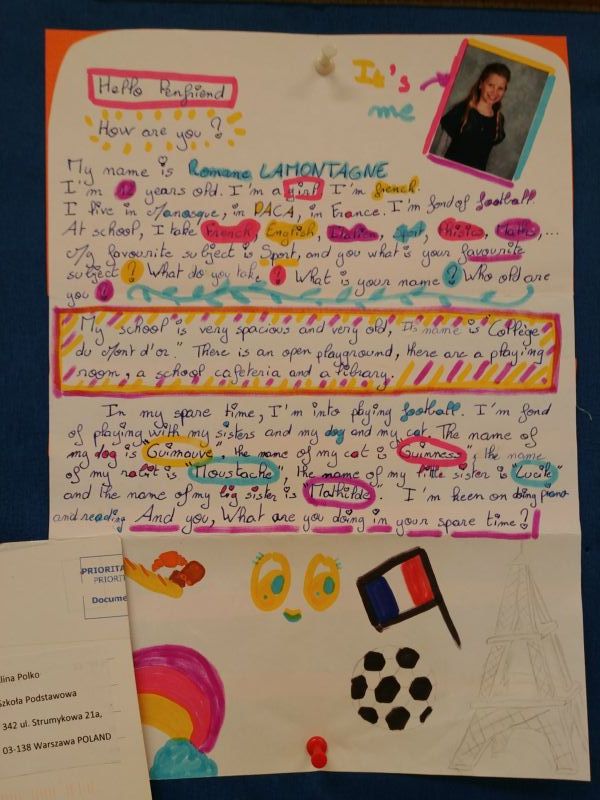 Hello Penfriend
It's
me
How are you ?
My name is Romane LAMONTAGNE
I'm 12 years old. I'm a girl I'm french.
I live in Manosque, in PACA, in France. I'm fond of football.
At school, I take French, English, Italien, Sport, Phisic, Maths,...
My favourite subject is Sport, and you what is your favourite
subject ? What do you take ? What is your name ? Who old are
you ?
My school is very spacious and very old, Its name is "Collège
du Mont d'or." There is an open playground, there are a playing
room, a school cafeteria and a library.
In my spare time, I'm into playing football. I'm fond
of playing with my sisters and my dog and my cat. The name of
my dog is "Guimauve", the name of my cat is "Guinness", the name
of my rabit is "Moustache", the name of my little sister is "Lucile"
and the name of my big sister is "Mathilde". I'm keen on doing piano
and reading And you, What are you doing in your spare time ?
PRIORITA
PRIORIT
Docume
lina Polko
Szkoła Podstawowa
342 ul. Strumykowa 21a,
03-138 Warszawa POLAND